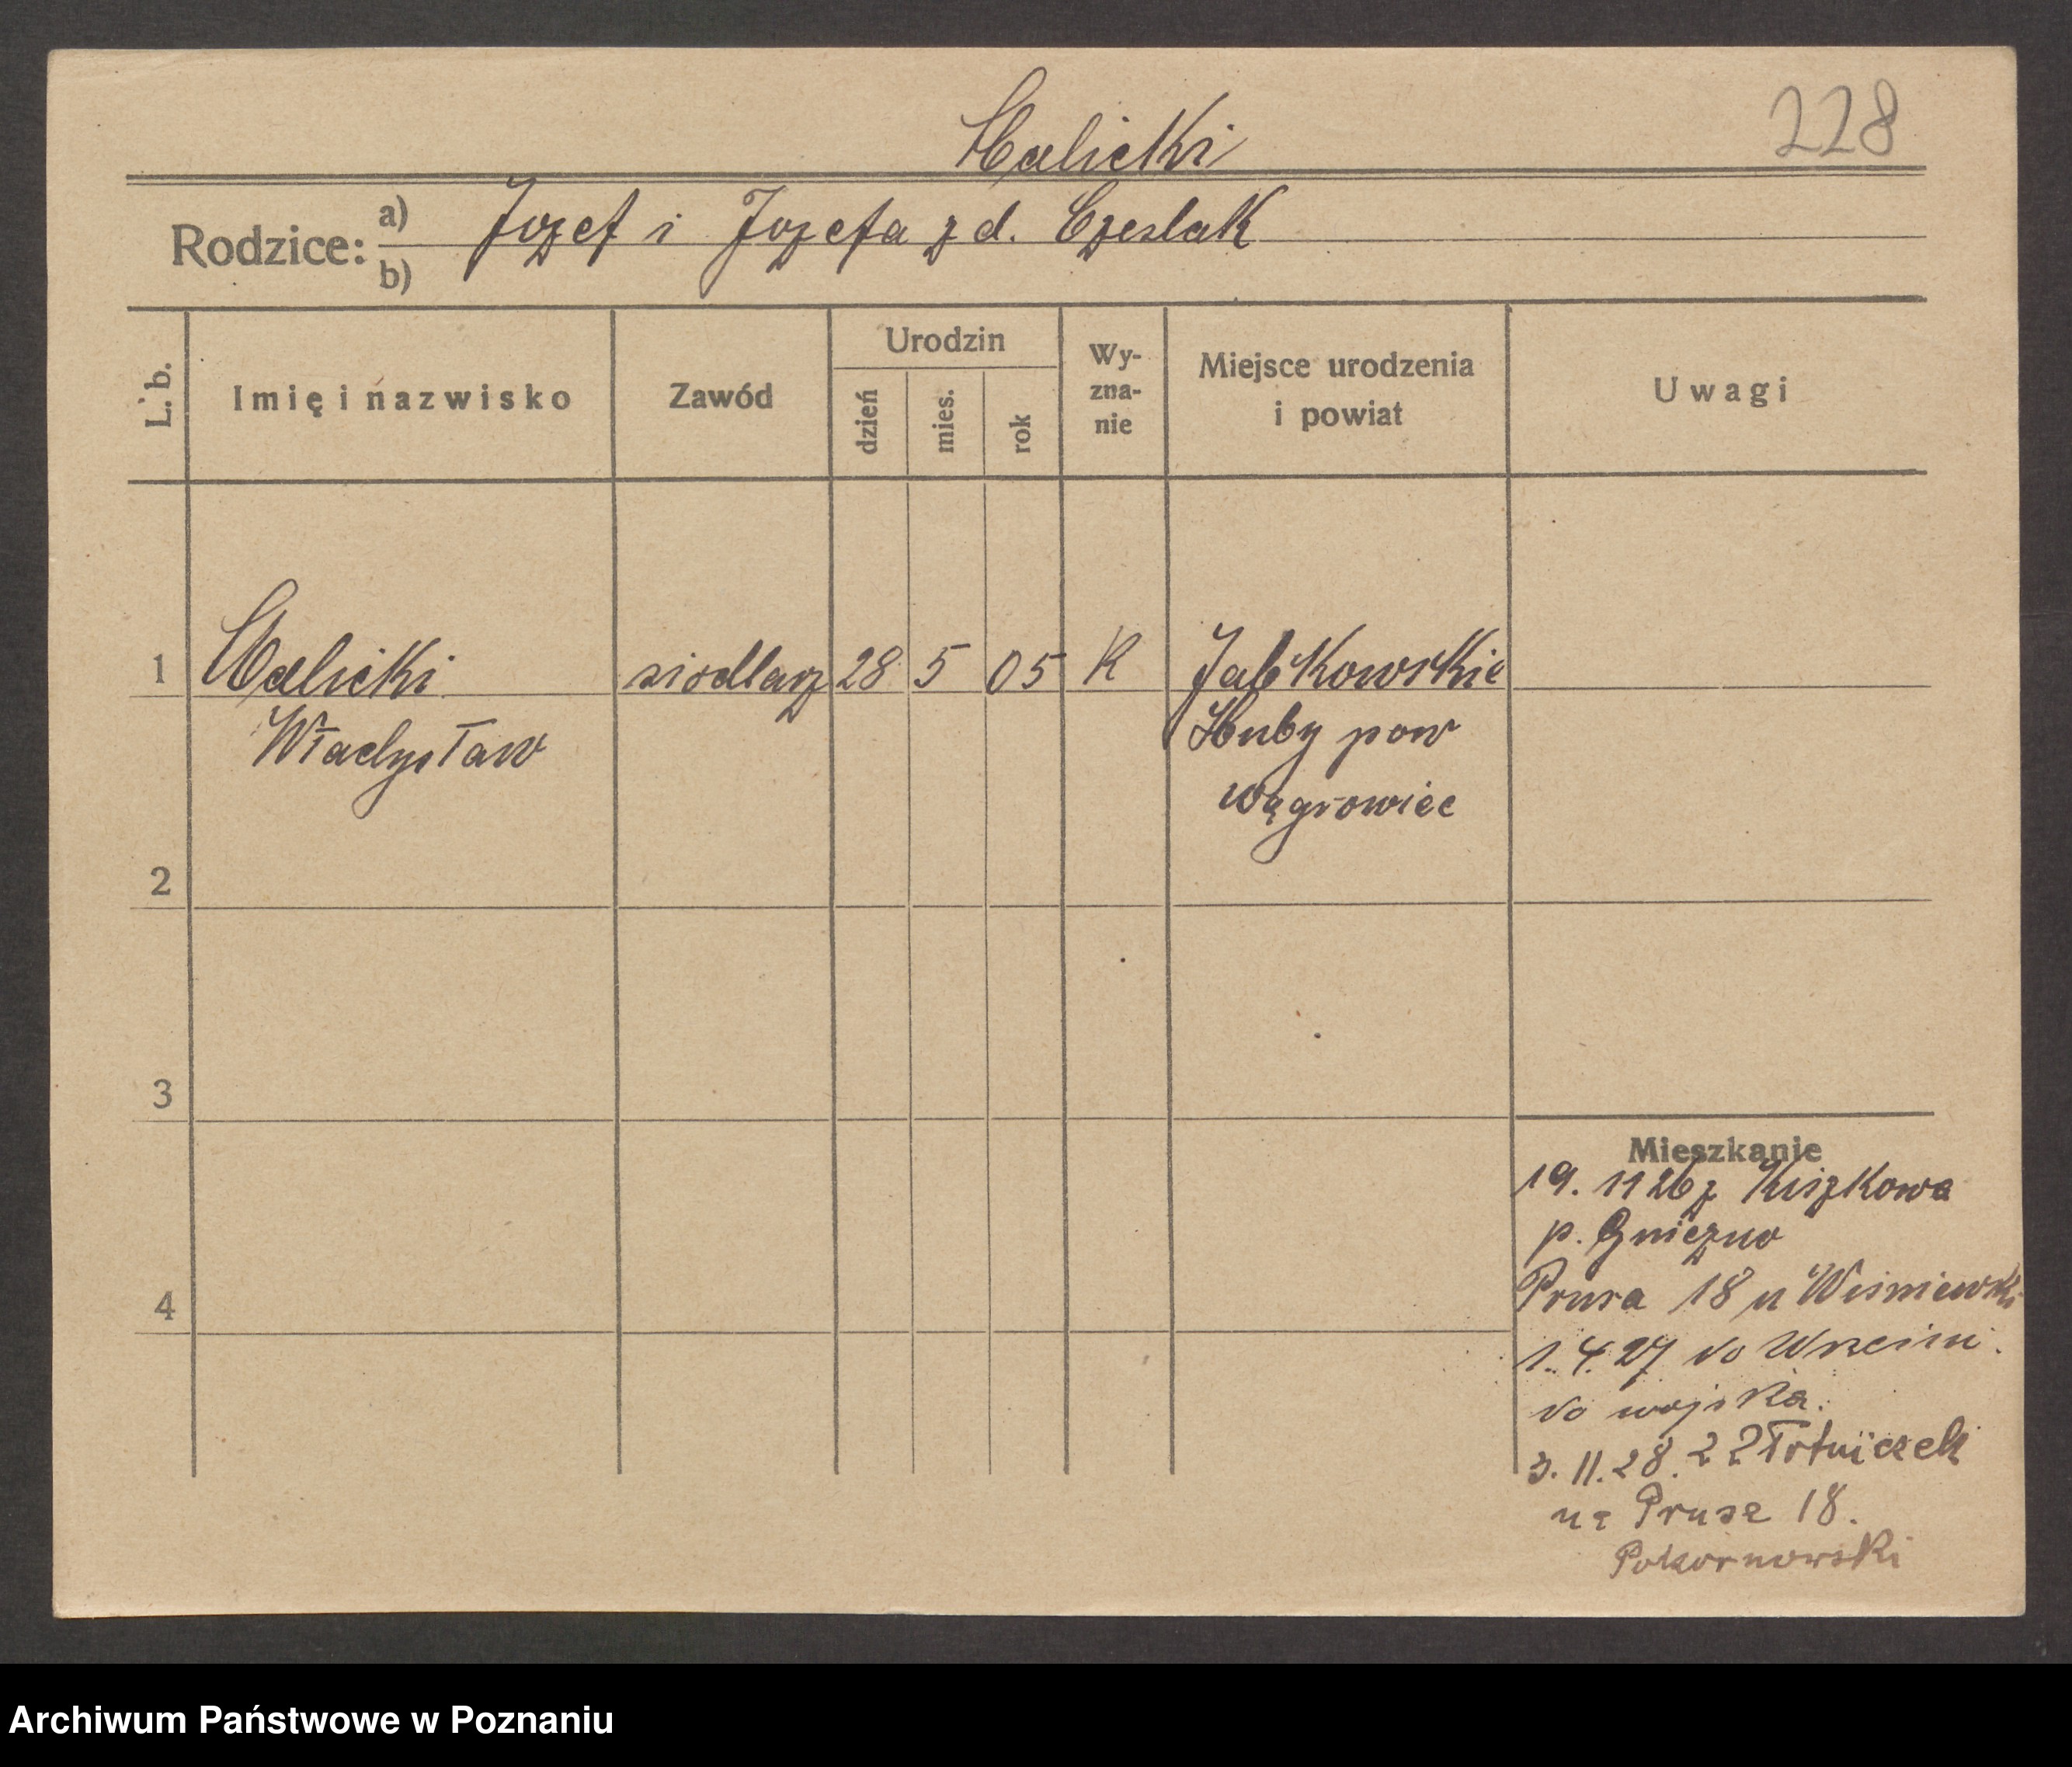 228
Halicki
Rodzice: a) Jozef i Jozefa z d. Czeslak
b)
L. b. Imię i nazwisko Zawód Urodzin dzień mies. rok Wy-zna-nie Miejsce urodzenia i powiat Uwagi
1 Halicki siodlarz 28 5 05 K Jabkowskie
Władysław Huby pow
wągrowiec
2
3
4
Mieszkanie
19. 11 26 z Kiszkowa
p. Gniezno
Prusa 18 u Wisniewski
1. 4. 27 do Wrześni.
do wojska.
3. 11. 28. z Złotniczek
na Prusa 18.
Pokornowski
Archiwum Państwowe w Poznaniu